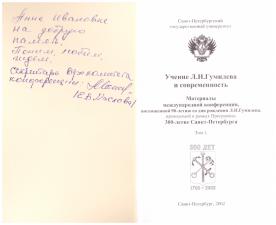 Анне Ивановне
на добрую
память.
Помним, любим,
ждем.
Секретарь оргкомитета
конференции
/Е.В. Маслова/
Санкт-Петербургский
государственный университет
Учение Л.Н.Гумилева
и современность
Материалы
международной конференции,
посвященной 90-летию со дня рождения Л.Н.Гумилева,
проводимой в рамках Программы
300-летие Санкт-Петербурга
Том 1
300 ЛЕТ
1703 - 2003
Санкт-Петербург, 2002